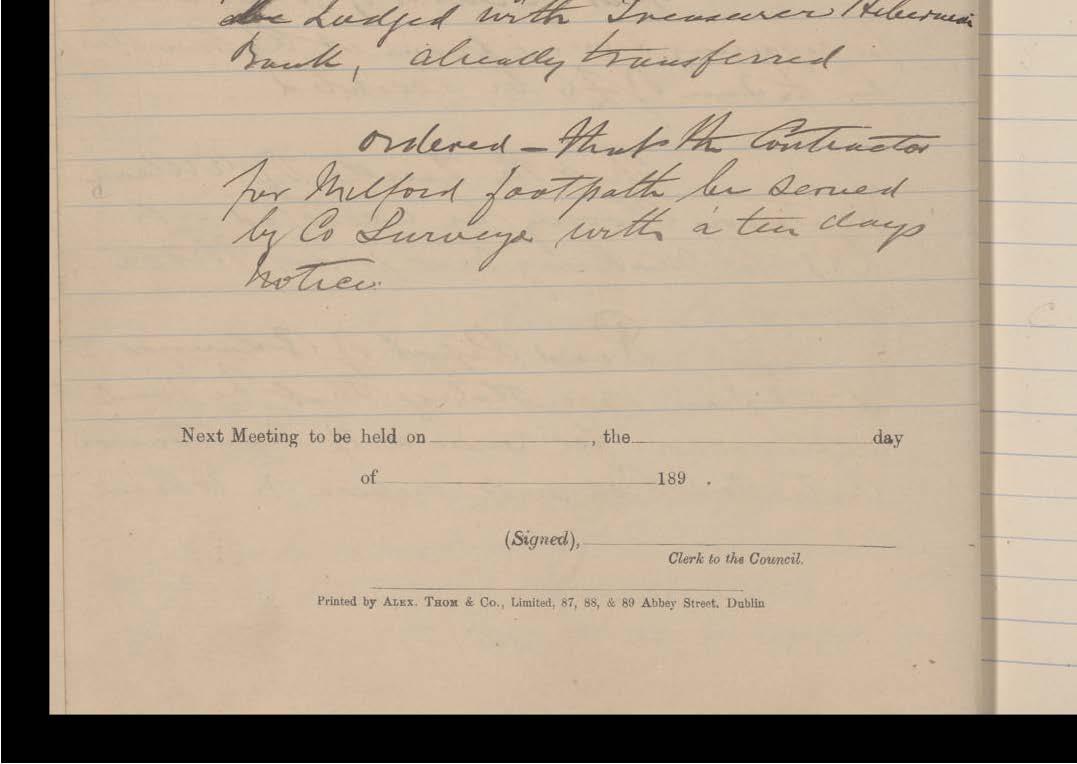 be Lodged with Treasurer Hibernian
Bank, already transferred
ordered – that the Contractor
for Milford footpath be served
by Co Surveyor with a ten days
notice.
Next Meeting to be held on , the day
of 189 .
(Signed),
Clerk to the Council.
Printed by ALEX. THOM & Co., Limited, 87, 88, & 89 Abbey Street, Dublin